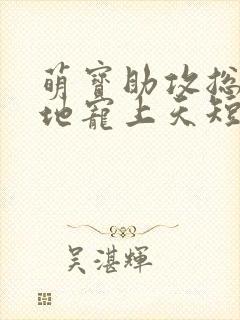 萌寶助攻總
地寵上天短
吳湛輝